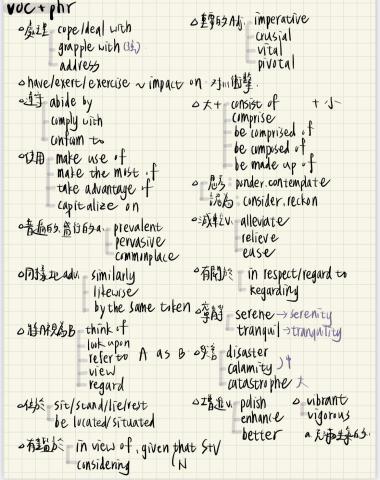 voc+phr
處理 cope/deal with
grapple with
address
have/exert/exercise ~ impact on 對...衝擊
遵守 abide by
comply with
confam to
使用 make use of
make the most of
take advantage of
capitalize on
普遍的, 盛行的a. prevalent
pervasive
commonplace
同樣地 adv. similarly
likewise
by the same token
將A視為B think of
look upon
refer to A as B
view
regard
位於 sit/stand/lie/rest
be located/situated
有鑑於 in view of, given that StV
considering N
重要的Adj. imperative
crusial
vital
pivotal
大+ consist of +小
comprise
be comprised of
be composed of
be made up of
思考 ponder.contemplate
認為 consider.reckon
減輕v. alleviate
relieve
ease
有關於 in respect/regard to
regarding
寧靜 serene→serenity
tranquil→tranquility
災害 disaster
calamity 小
catastrophe 大
增進v. polish
enhance
better
vibrant
vigorous
a.充滿生氣的